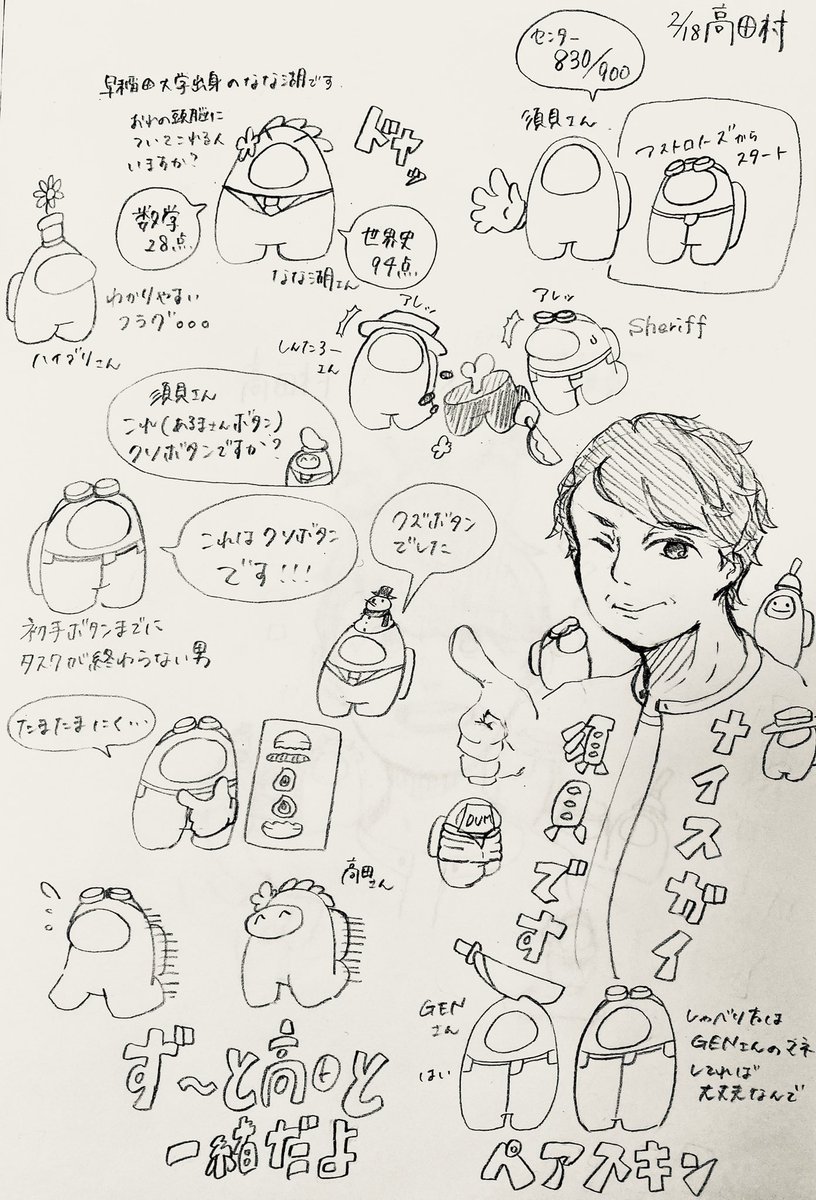 2/18高田村
センター
830/900
須貝さん
アストロノーズから
スタート
早稲田大学出身のなな湖です
おれの頭脳に
ついてこれる人
いますか?
ドヤッ
数学
28点
世界史
94点
なな湖さん
わかりやすい
フラグ。。。
ハイブリさん
アレッ
しんたろー
さん
アレッ
Sheriff
須貝さん
これ(あるまさんボタン)
クソボタンですか?
これはクソボタン
です!!!
クズボタン
でした
初手ボタンまでに
タスクが終わらない男
たまたまにく…
ナイスガイ
須貝です
DUM
高田さん
ず〜と高田と
一緒だよ
GEN
さん
はい
しゃべり方は
GENさんのマネ
してれば
大丈夫なんで
ペアスキン